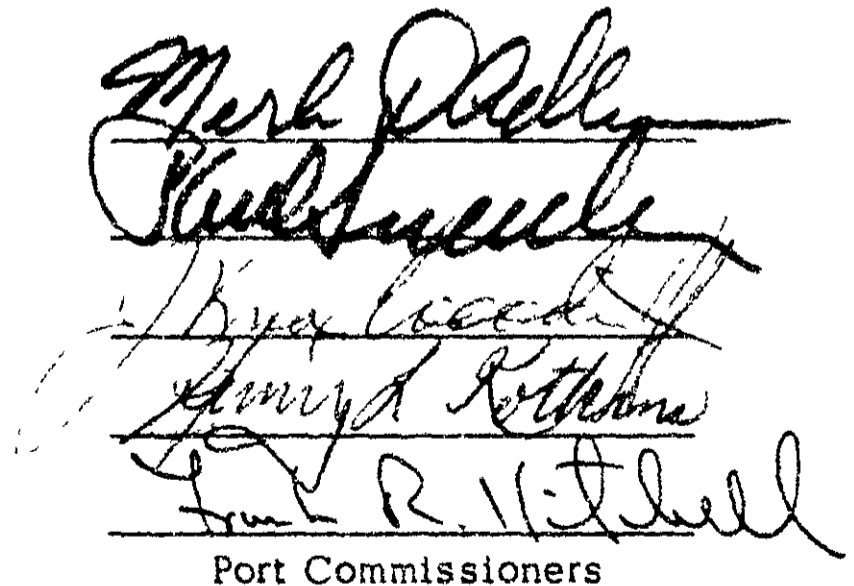 Merle D. Adlum
Paul
Knox
Henry L Kotkins
Frank R. Kitchell
Port Commissioners